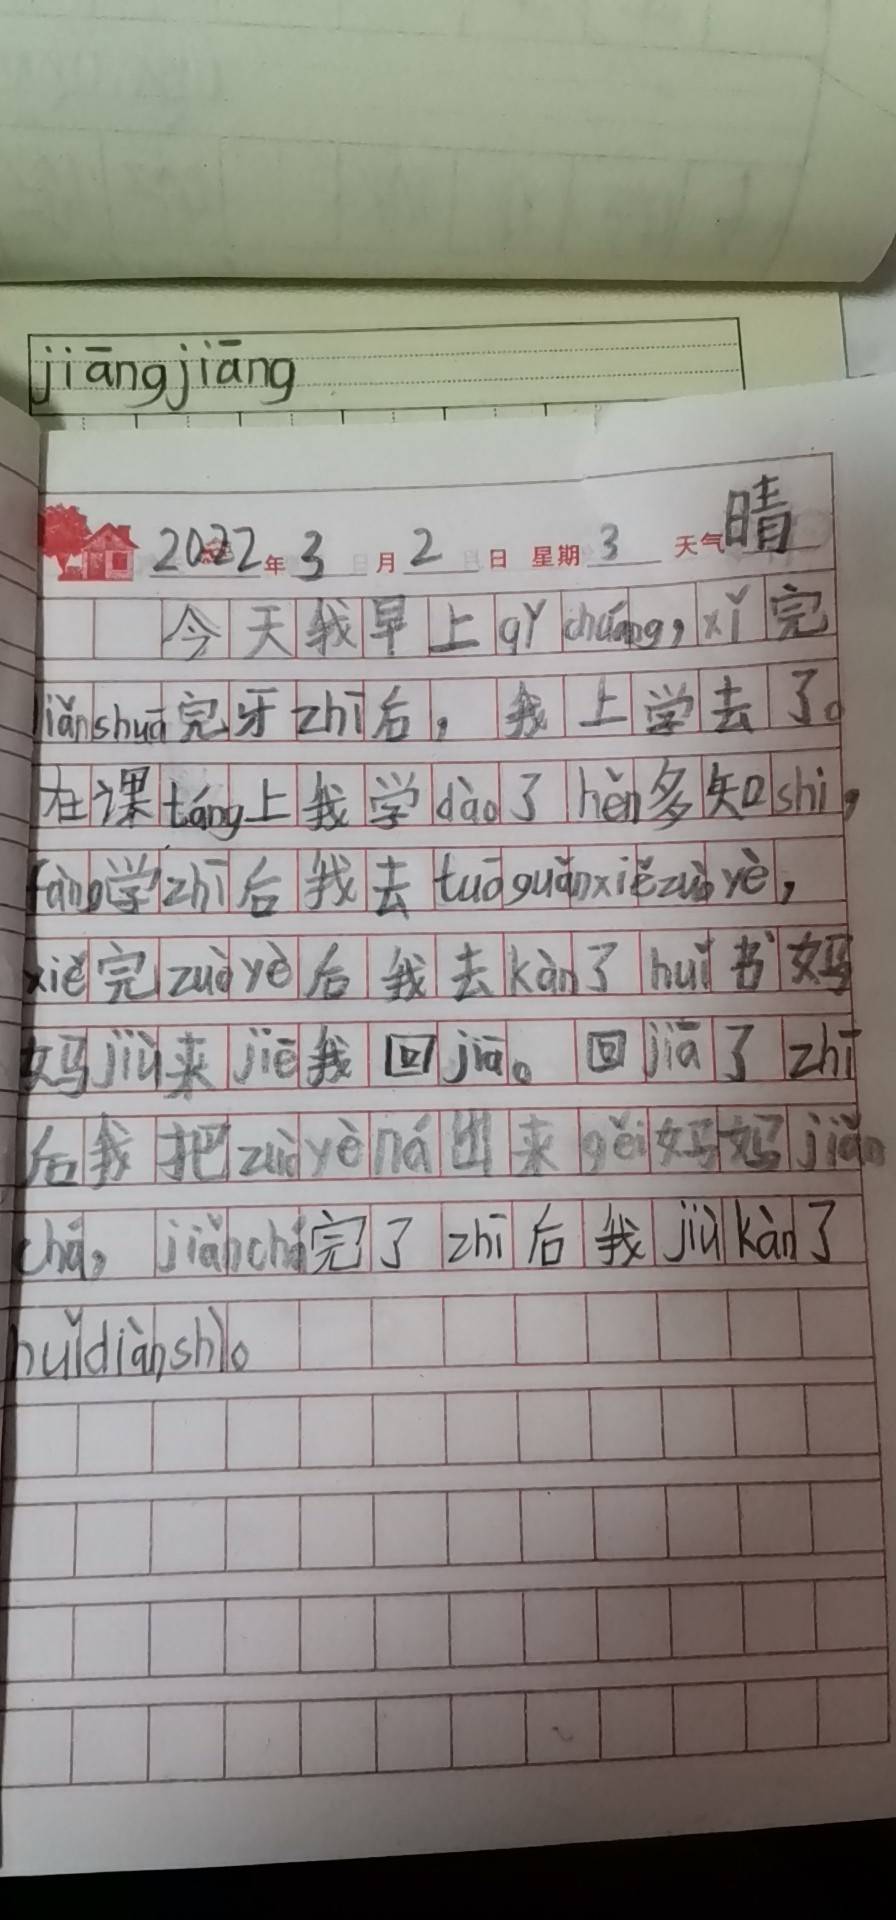 jiāngjiāng
2022年3月2日 星期3 天气晴
今天我早上qǐchuáng，xǐ完
liǎnshuā完牙zhī后，我上学去了。
在课táng上我学dào了hěn多知shi，
fàng学zhī后我去tuōguǎnxiězuòyè，
xiě完zuòyè后我去kàn了huǐ书妈
妈jiù来jiē我回jiā。回jiā了zhī
后我把zuòyèná出来gěi妈妈jiǎn
chá，jiǎnchá完了zhī后我jiùkàn了
huǐdiànshì。